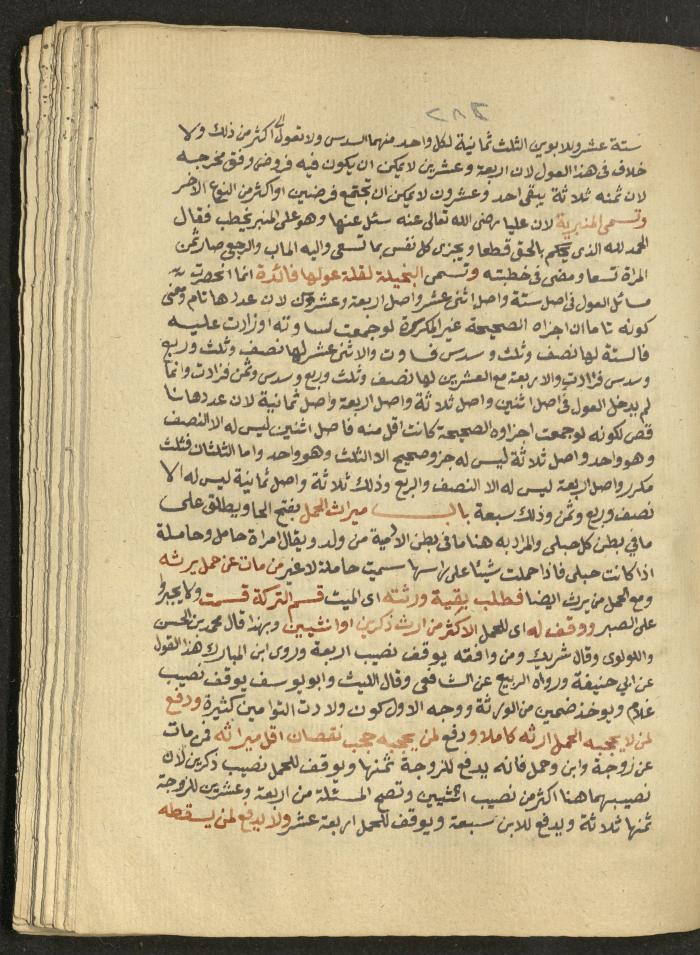 ستة عشر وللابوين الثلث ثمانية لكل واحد منهما السدس ولا تعول الى اكثر من ذلك ولا
خلاف فى هذا العول لان اربعة وعشرين لا يمكن ان يكون فيه فروض وفق مخرجه
لان ثمنه ثلاثة يبقى احد وعشرون لا يمكن ان تجتمع فرضين او اكثر من النوع الاخر
وتسمى المنبرية لان عليا رضى الله تعالى عنه سئل عنها وهو على المنبر يخطب فقال
الحمد لله الذى يحكم بالحق قطعا ويجزى كل نفس بما تسعى واليه الماب والرجعى صار ثمن
المراة تسعا ومضى فى خطبته وتسمى البخيلة لقلة عولها فائدة انما انحصرت
مسائل العول فى اصل ستة واصل اثنى عشر واصل اربعة وعشرين لان عددها تام ومعنى
كونه تاما ان اجزاه الصحيحة غير المكررة لو جمعت لساوته او زادت عليه
فالستة لها نصف وثلث وسدس فساوت والاثنى عشر لها نصف وثلث وربع
وسدس فزادت والاربعة مع العشرين لها نصف وثلث وربع وسدس وثمن فزادت وانما
لم يدخل العول فى اصل اثنين واصل ثلاثة واصل اربعة واصل ثمانية لان عددها نا
قص لكونه لو جمعت اجزاوه الصحيحة كانت اقل منه فاصل اثنين ليس له الا النصف
وهو واحد واصل ثلاثة ليس له جزو صحيح الا الثلث وهو واحد واما الثلثان فثلث
مكرر واصل اربعة ليس له الا النصف والربع وذلك ثلاثة واصل ثمانية ليس له الا
نصف وربع وثمن وذلك سبعة باب ميراث الحمل بفتح الحا ويطلق على
ما فى بطن كل حبلى والمراد به هنا ما فى بطن الادمية من ولد ويقال امراة حامل وحاملة
اذا كانت حبلى فاذا حملت شيئا على راسها سميت حاملة لا غير من مات عن حمل يرثه
ومع الحمل من يرث ايضا فطلب بقية ورثته اى الميت قسم التركة قسمت ولا يجبروا
على الصبر ووقف له اى للحمل الاكثر من ارث ذكرين او انثيين وبهذا قال محمد بن الحسن
واللولوى وقال شريك ومن وافقه يوقف نصيب اربعة وروى ابن المبارك هذا القول
عن ابى حنيفة ورواه الربيع عن الشافعى وقال الليث وابو يوسف يوقف نصيب
غلام ويوخذ ضمين من الورثة ووجه الاول كون ولادت التوامين كثيرة ودفع
لمن لا يحجبه الحمل ارثه كاملا ودفع لمن يحجبه حجب نقصان اقل ميراثه فمن مات
عن زوجة وابن وحمل فانه يدفع للزوجة ثمنها ويوقف للحمل نصيب ذكرين لان
نصيبهما هنا اكثر من نصيب انثيين وتصح المسئلة من اربعة وعشرين للزوجة
ثمنها ثلاثة ويدفع للابن سبعة ويوقف للحمل اربعة عشر ولا يدفع لمن يسقطه